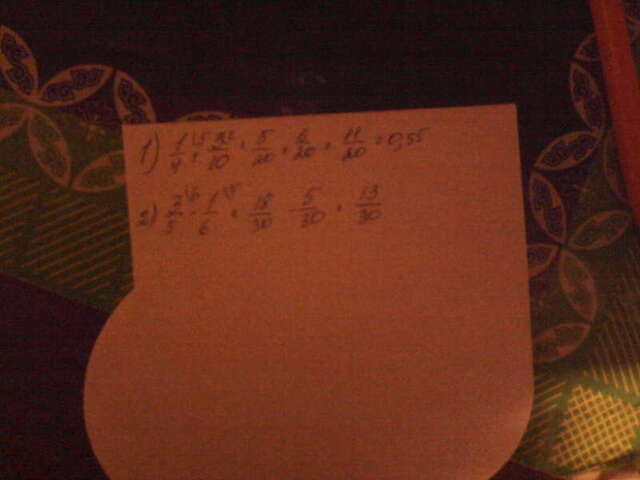 1) 1/4 + 3/10 = 5/20 + 6/20 = 11/20 = 0,55
2) 3/5 - 1/6 = 18/30 - 5/30 = 13/30